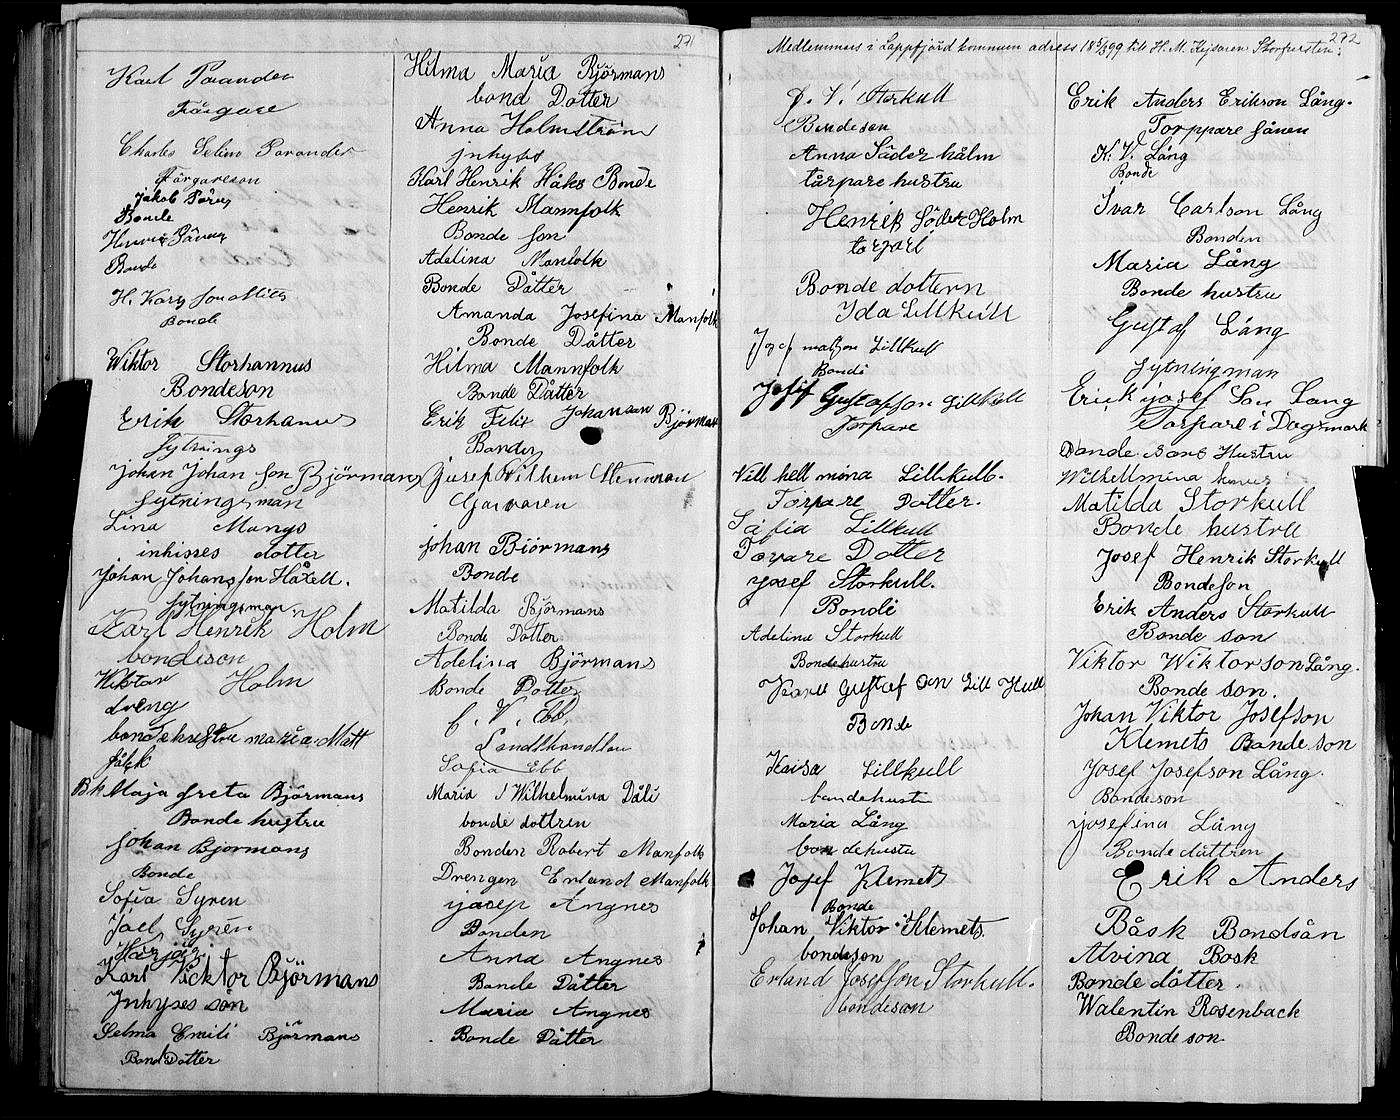 271
Karl Parander
Färgare
Charles Selim Parander
Färgareson
Jakob
Bonde
Bonde
H. Karg son
Bonde
Wiktor Storhannus
Bondeson
Erik Storhanus
sytnings
Johan Johan son Björmans
sytningsman
Lina Mangs
inhisses dotter
Johan Johansson
sytningsman
Karl Henrik Holm
bondeson
Wiktor Holm
dreng
bondehustru maria Matt
fålk
Bh Maja Greta Björmans
Bonde hustru
Johan Bjormans
Bonde
Sofia Syren
Joel Syrén
Karl Vicktor Björmans
Inhyses son
Selma Emili Björmans
Bond Dotter
Hilma Maria Björmans
bond Dotter
Anna Holmström
jnhyses
Karl Henrik Håks Bonde
Henrik Mannfolk
Bonde son
Adelina Manfolk
Bonde Dåtter
Amanda Josefina Manfolk
Bonde Dåtter
Hilma Mannfolk
Bonde Dåtter
Erik Felix Johanson Björman
Bonde
Josef Wilhem
Garvaren
johan Biörmans
Bonde
Matilda Björmans
Bonde Dotter
Adelina Björmans
Bonde Dotter
V. Ebb
Landthandlan
Sofia Ebb
Maria Wilhelmina Dåli
bonde dottren
Bonden Robert Manfolk
Drengen Erland Manfolk
Angnes
Bonden
Anna Angnes
Bande Dåtter
Maria Angnes
Bonde Dåtter
272
Medlemmars i Lappfjärd kommun adress 18 5/3 99 till H. M. Kejsaren Storfursten:
V. Storkull
Bondeson
Anna Söderhålm
tårpare hustru
Henrik Söder Holm
torpari
Bonde dottern
Ida Lillkull
Josef matson Lillkull
Bonde
Josef Gustafson Lillkull
Torpare
Vill hell mina Lillkull.
Torpare Dotter.
Såfia Lillkull
Torpare Dotter
Josef Storkull.
Bonde
Adelina Storkull
Bondehustru
Karll Gustaf Son Lill Kull
Bonde
Kaisa Lillkull
bandehustr
Maria Lång
bondehustu
Josef Klemets
Bonde
Johan Viktor Klemets.
bondeson
Erland Josefson Storkull.
bondeson
Erik Anders Erikson Lång.
Torppare sånen
K. V. Lång
Bonde
Ivar Carlson Lång
Bonden
Maria Lång
Bonde hustru
Gustaf Lång
Sytningman
Erick josef Son Lang
Torpare i Dagsmark
Bande Sons Hustru
Wilhellmina
Matilda Storkull
Bonde hustru
Josef Henrik Storkull
Bondeson
Erik Anders Storkull
Bonde son
Viktor Wiktorson Lång.
Bonde son.
Johan Viktor Josefson
Klemets Bonde son
Josef Josefson Lång.
Bondeson
josefina Lång
Bonde dåttren
Erik Anders
Båsk Bondsån
Alvina Bosk
Bonde dåtter.
Walentin Rosenback
Bonde son